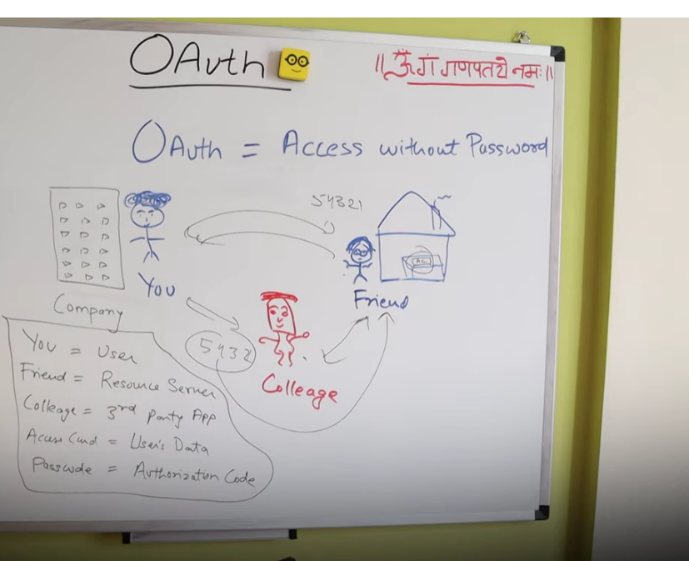 OAuth
॥ ॐ गं गणपतये नमः ॥
OAuth = Access without Password
54321
You
Friend
Company
5432
Colleage
You = User
Friend = Resource Server
Colleage = 3rd Party App
Access Card = User's Data
Passcode = Authorization Code